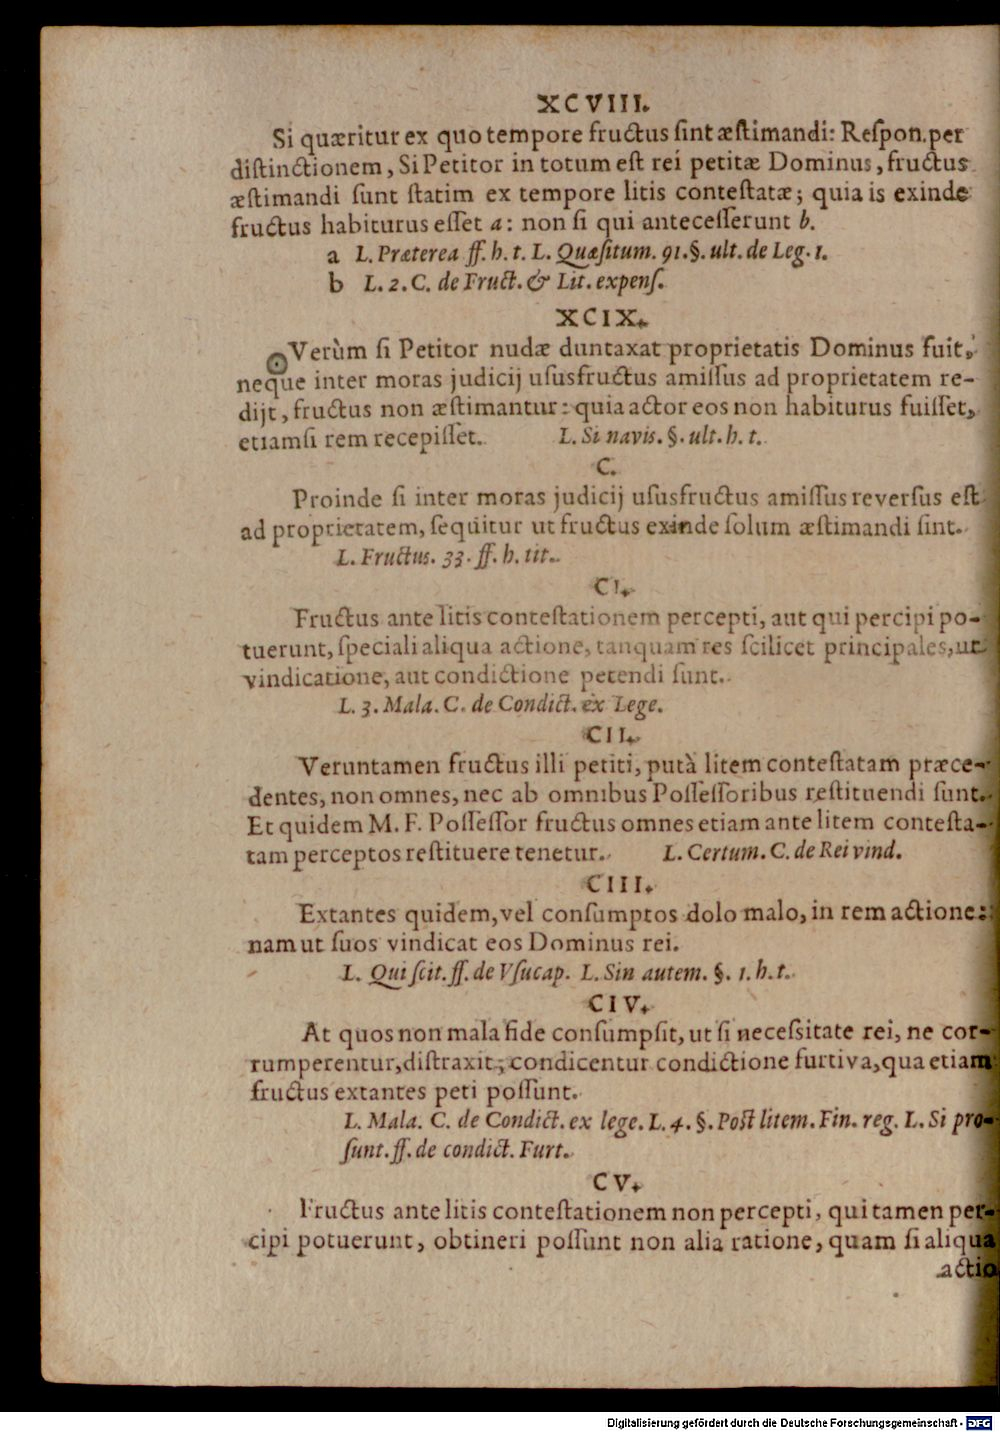 XCVIII.
Si quæritur ex quo tempore fructus ſint æſtimandi: Reſpon. per
diſtinctionem, Si Petitor in totum eſt rei petitæ Dominus, fructus
æſtimandi ſunt ſtatim ex tempore litis conteſtatæ; quia is exinde
fructus habiturus eſſet a: non ſi qui anteceſſerunt b.
a L. Præterea ff. h. t. L. Quæſitum. 91. §. ult. de Leg. 1.
b L. 2. C. de Fruct. & Lit. expenſ.
XCIX.
Verùm ſi Petitor nudæ duntaxat proprietatis Dominus fuit,
neque inter moras judicij uſusfructus amiſſus ad proprietatem re-
dijt, fructus non æſtimantur: quia actor eos non habiturus fuiſſet,
etiamſi rem recepiſſet. L. Si navis. §. ult. h. t.
C.
Proinde ſi inter moras judicij uſusfructus amiſſus reverſus eſt
ad proprietatem, ſequitur ut fructus exinde ſolum æſtimandi ſint.
L. Fructus. 33. ff. h. tit.
CI.
Fructus ante litis conteſtationem percepti, aut qui percipi po-
tuerunt, ſpeciali aliqua actione, tanquam res ſcilicet principales, ut
vindicatione, aut condictione petendi ſunt.
L. 3. Mala. C. de Condict. ex Lege.
CII.
Veruntamen fructus illi petiti, putà litem conteſtatam præce-
dentes, non omnes, nec ab omnibus Poſſeſſoribus reſtituendi ſunt.
Et quidem M. F. Poſſeſſor fructus omnes etiam ante litem conteſta-
tam perceptos reſtituere tenetur. L. Certum. C. de Rei vind.
CIII.
Extantes quidem, vel conſumptos dolo malo, in rem actione:
nam ut ſuos vindicat eos Dominus rei.
L. Qui ſcit. ff. de Vſucap. L. Sin autem. §. 1. h. t.
CIV.
At quos non mala fide conſumpſit, ut ſi neceſsitate rei, ne cor-
rumperentur, diſtraxit; condicentur condictione furtiva, qua etiam
fructus extantes peti poſſunt.
L. Mala. C. de Condict. ex lege. L. 4. §. Poſt litem. Fin. reg. L. Si pro-
ſunt. ff. de condict. Furt.
CV.
Fructus ante litis conteſtationem non percepti, qui tamen per-
cipi potuerunt, obtineri poſſunt non alia ratione, quam ſi aliqua
actio
Digitalisierung gefördert durch die Deutsche Forschungsgemeinschaft - DFG